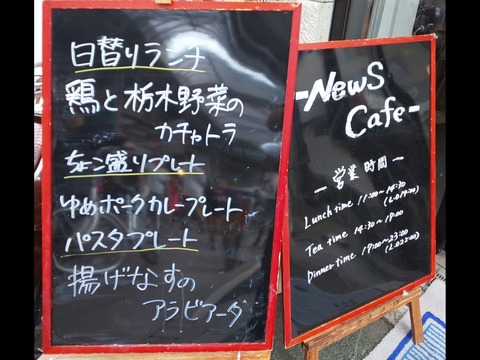 日替りランチ
鶏と栃木野菜の
カチャトラ
ちょこ盛りプレート
ゆめポークカレープレート
パスタプレート
揚げなすの
アラビアータ
-News
Cafe-
ー営業時間ー
Lunch time 11:00~14:30
Tea time 14:30~17:00
Dinner time 17:00~23:00
(L.O 22:00)